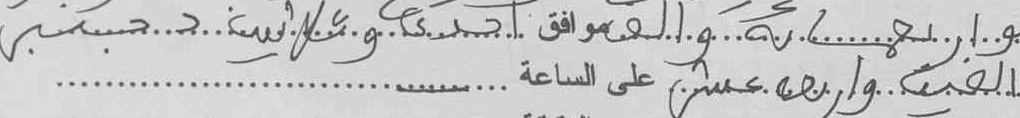 و اربعمائة و ال موافق احدى و ثلاثين دجنبر
الفين و اربعة عشر على الساعة